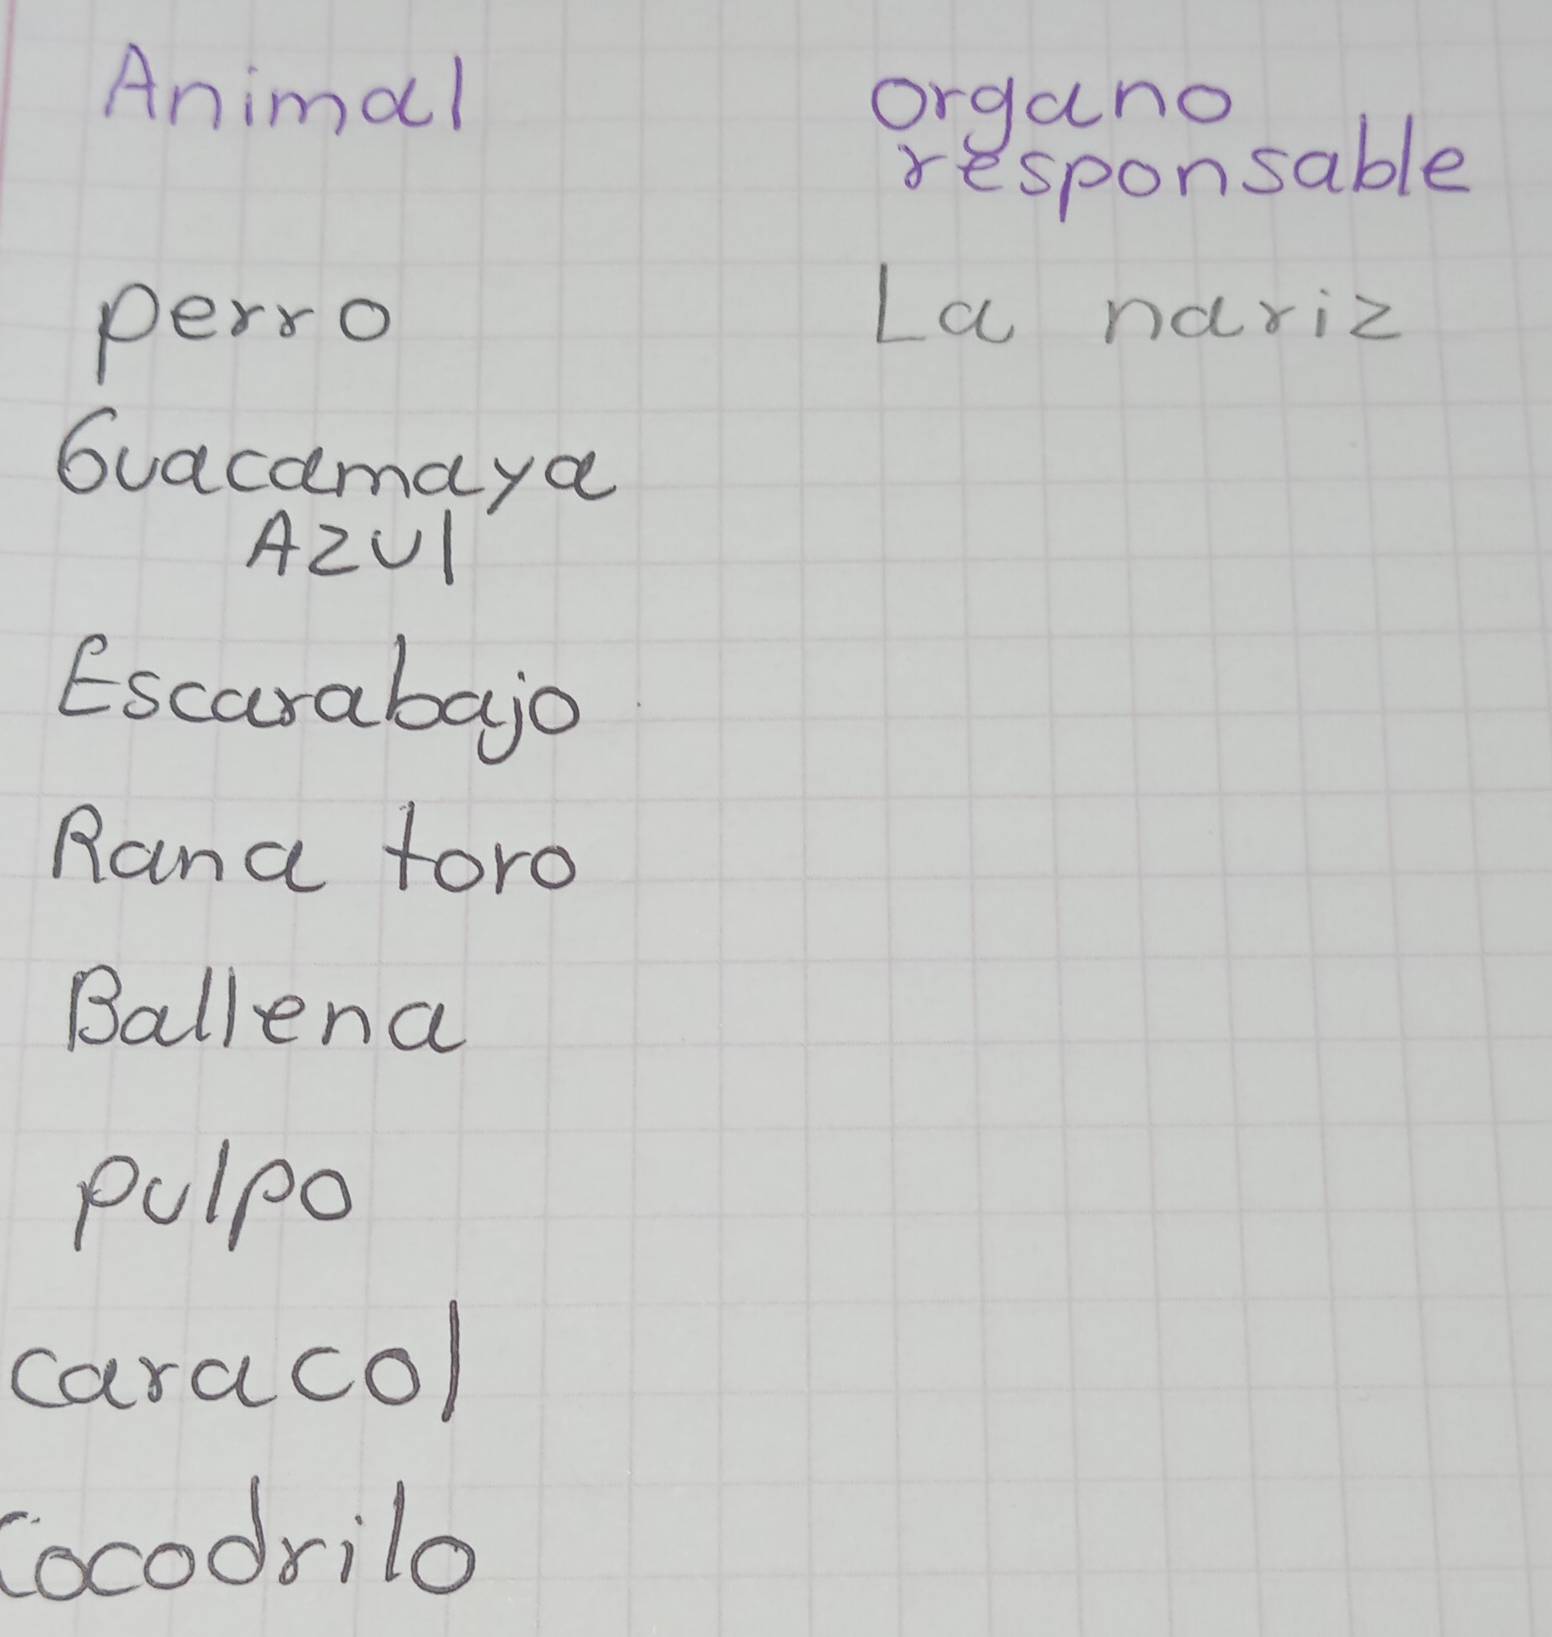 Animal
organo
responsable
perro
La nariz
Guacamaya
Azul
Escarabajo
Rana toro
Ballena
pulpo
caracol
Cocodrilo